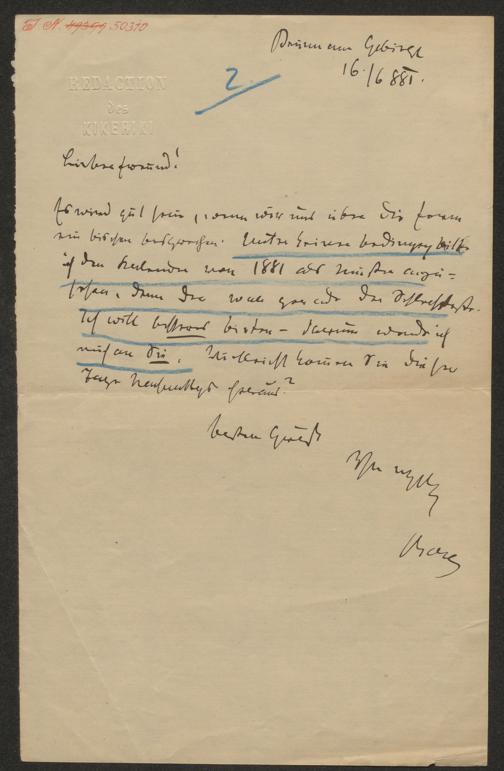 I. N. 49359 50310
Brunn am Gebirge
16./6 881.
2
REDACTION
des
KIKERIKI
Lieber Freund!
Es wird gut sein, wenn wir uns über die Form
ein bischen besprechen. Unter keiner Bedingung bitte
ich den Kalender von 1881 als Muster anzu-
sehen, denn der war gerade der Schlechteste.
Ich will besseres bieten – darum wende ich
mich an Sie. Vielleicht kommen Sie dieser
Tage Nachmittags heraus?
besten Gruß
Ihr